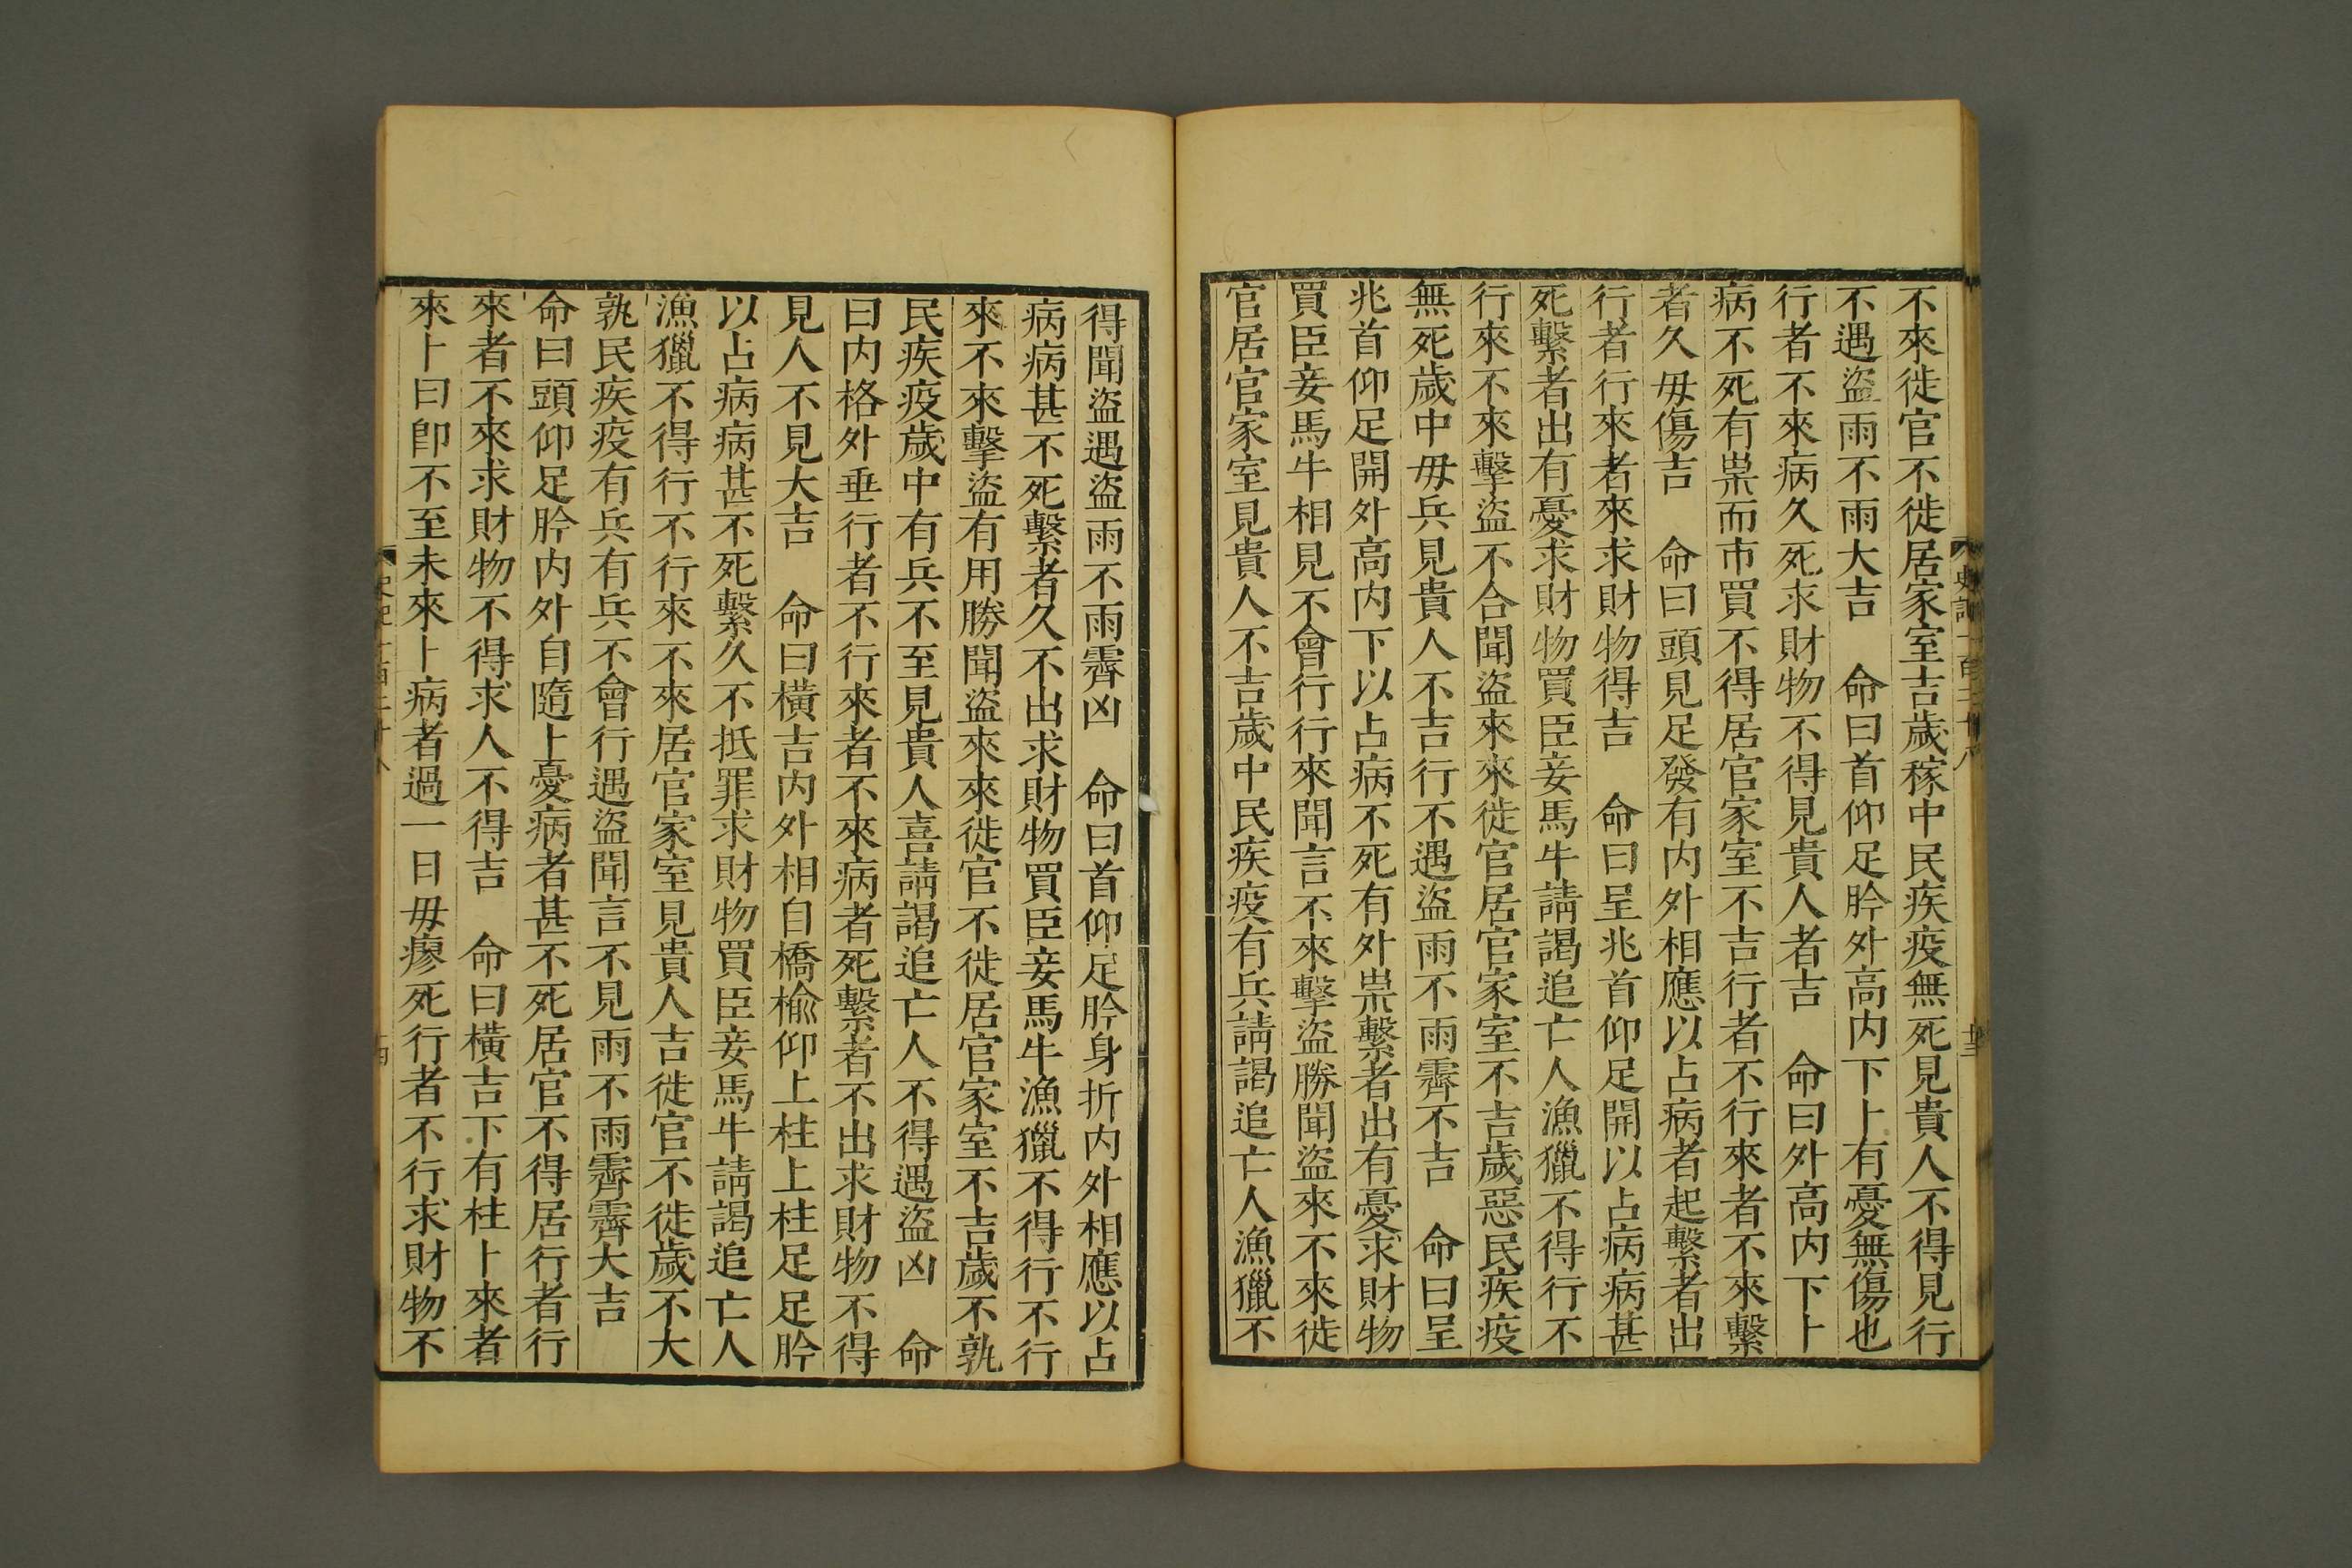 不來徙官不徙居家室吉歲稼中民疾疫無死見貴人不得見行
不遇盜雨不雨大吉　命曰首仰足肣外高内下卜有憂無傷也
行者不來病久死求財物不得見貴人者吉　命曰外高内下卜
病不死有祟而市買不得居官家室不吉行者不行來者不來繫
者久毋傷吉　命曰頭見足發有内外相應以占病者起繫者出
行者行來者來求財物得吉　命曰呈兆首仰足開以占病病甚
死繫者出有憂求財物買臣妾馬牛請謁追亡人漁獵不得行不
行來不來擊盜不合聞盜來來徙官居官家室不吉歲惡民疾疫
無死歲中毋兵見貴人不吉行不遇盜雨不雨霽不吉　命曰呈
兆首仰足開外高内下以占病不死有外祟繫者出有憂求財物
買臣妾馬牛相見不會行行來聞言不來擊盜勝聞盜來不來徙
官居官家室見貴人不吉歲中民疾疫有兵請謁追亡人漁獵不
得聞盜遇盜雨不雨霽凶　命曰首仰足肣身折内外相應以占
病病甚不死繫者久不出求財物買臣妾馬牛漁獵不得行不行
來不來擊盜有用勝聞盜來來徙官不徙居官家室不吉歲不孰
民疾疫歲中有兵不至見貴人喜請謁追亡人不得遇盜凶　命
曰内格外垂行者不行來者不來病者死繫者不出求財物不得
見人不見大吉　命曰橫吉内外相自橋榆仰上柱上柱足足肣
以占病病甚不死繫久不抵罪求財物買臣妾馬牛請謁追亡人
漁獵不得行不行來不來居官家室見貴人吉徙官不徙歲不大
孰民疾疫有兵有兵不會行遇盜聞言不見雨不雨霽霽大吉
命曰頭仰足肣内外自隨卜憂病者甚不死居官不得居行者行
來者不來求財物不得求人不得吉　命曰橫吉下有柱卜來者
來卜曰卽不至未來卜病者過一日毋瘳死行者不行求財物不
史記一百二十八